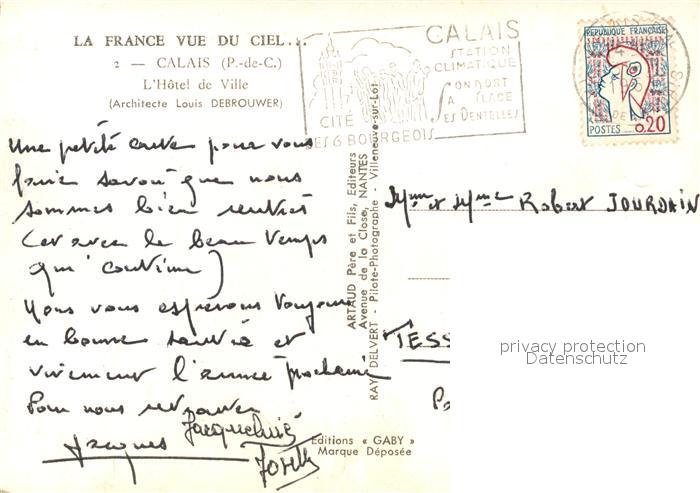 LA FRANCE VUE DU CIEL...
2 — CALAIS (P.-de-C.)
L'Hôtel de Ville
(Architecte Louis DEBROUWER)
CALAIS
STATION
CLIMATIQUE
SON PORT
SA PLAGE
SES DENTELLES
CITÉ
DES 6 BOURGEOIS
REPUBLIQUE FRANÇAISE
POSTES 0,20
Une petite carte pour vous
faire savoir que nous
sommes bien rentrés
(et avec le beau temps
qui continue)
Nous vous espérons toujours
en bonne santé et
vivement l'année prochaine
Pour nous retrouver
Jacqueline
Jacques
Joëlle
ARTAUD Père et Fils, Editeurs
Avenue de la Close, NANTES
RAY DELVERT - Pilote-Photographe - Villeneuve-sur-Lot
Editions « GABY »
Marque Déposée
Mr et Mme Robert JOURDAIN
TESS
privacy protection
Datenschutz